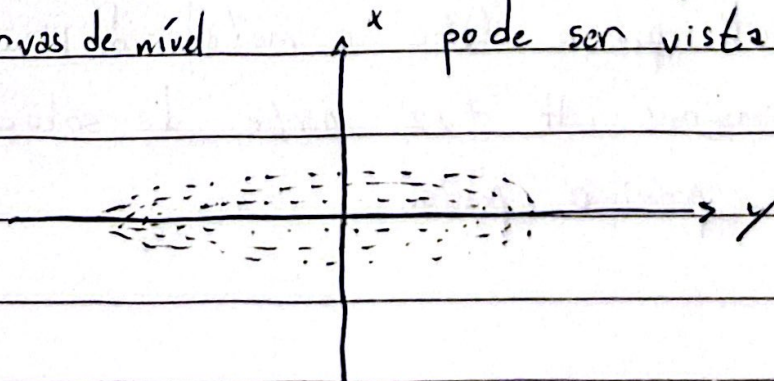 vas de nível x pode ser vista
y